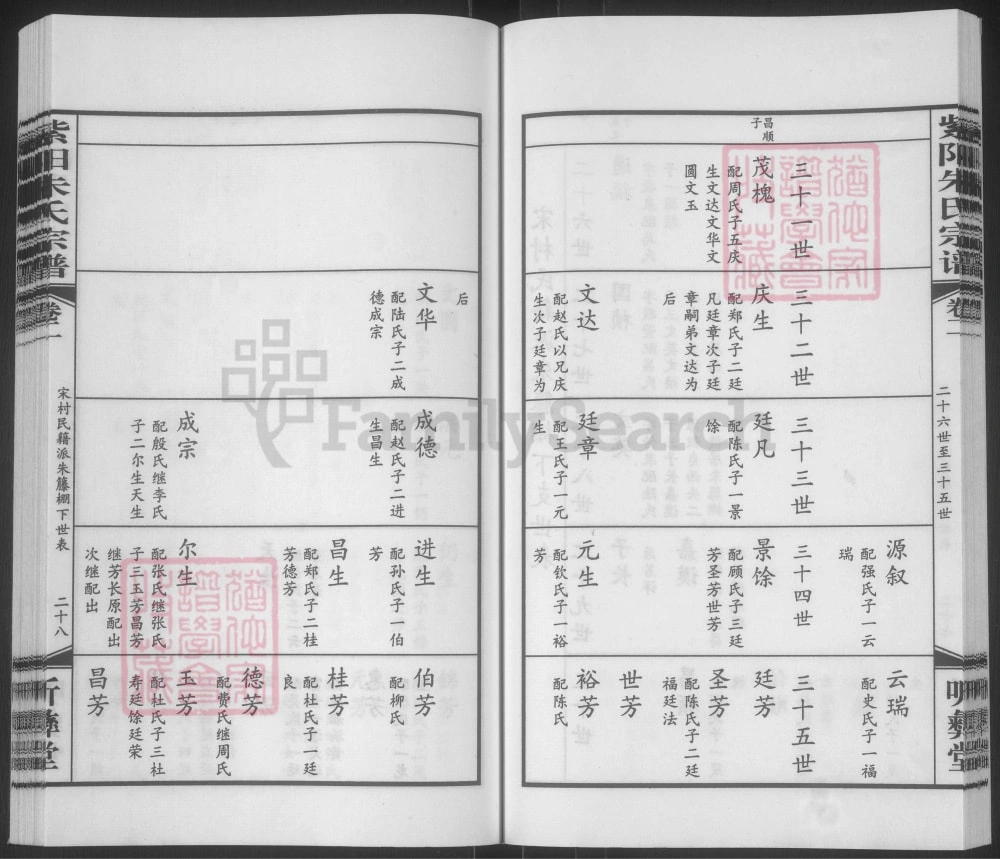 紫阳朱氏宗谱
卷一
二十六世至三十五世
明彝堂
源叙
配强氏子一云
瑞
云瑞
配史氏子一福
三十一世
三十二世
三十三世
三十四世
三十五世
昌顺
子
茂槐
配周氏子五庆
生文达文华文
圆文玉
庆生
配郑氏子二廷
凡廷章次子廷
章嗣弟文达为
后
廷凡
配陈氏子一景
馀
景馀
配顾氏子三廷
芳圣芳世芳
廷芳
圣芳
配陈氏子二廷
福廷法
世芳
文达
配赵氏以兄庆
生次子廷章为
后
廷章
配王氏子一元
生
元生
配钦氏子一裕
芳
裕芳
配陈氏
文华
配陆氏子二成
德成宗
成德
配赵氏子二进
生昌生
进生
配孙氏子一伯
芳
伯芳
配柳氏
昌生
配郑氏子二桂
芳德芳
桂芳
配杜氏子一廷
良
德芳
配费氏继周氏
成宗
配殷氏继李氏
子二尔生天生
尔生
配张氏继张氏
子三玉芳昌芳
继芳长原配出
次继配出
玉芳
配杜氏子三杜
寿廷馀廷荣
昌芳
紫阳朱氏宗谱
卷一
宋村民籍派朱籐棚下世表
二十八
FamilySearch